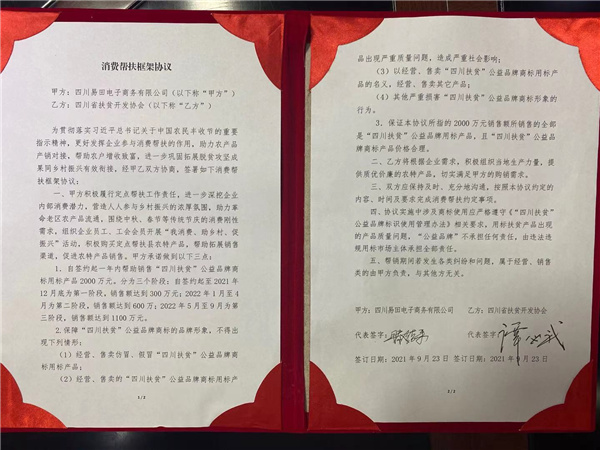 消费帮扶框架协议
甲方：四川易田电子商务有限公司（以下称“甲方”）
乙方：四川省扶贫开发协会（以下称“乙方”）
为贯彻落实习近平总书记关于中国农民丰收节的重要
指示精神，更好发挥企业参与消费帮扶的作用，助力农产品
产销对接，帮助农户增收致富，进一步巩固拓展脱贫攻坚成
果同乡村振兴有效衔接，经甲乙双方协商，签署如下消费帮
扶框架协议：
一、甲方积极履行定点帮扶工作责任，进一步深挖企业
内部消费潜力，营造人人参与乡村振兴的浓厚氛围，助力革
命老区农产品流通，围绕中秋、春节等传统节庆的消费刚性
需求，组织企业员工、工会会员开展“我消费、助乡村、促
振兴”活动，积极购买定点帮扶县农特产品，帮助拓展销售
渠道，促进农特产品销售。甲方承诺做到以下三点：
1．自签约起一年内帮助销售“四川扶贫”公益品牌商
标用标产品2000万元。分为三个阶段：自签约起至2021年
12月底为第一阶段，销售额达到300万元；2022年1月至4
月为第二阶段，销售额达到600万；2022年5月至9月为第
三阶段，销售额达到1100万元。
2．保障“四川扶贫”公益品牌商标的品牌形象，不得出
现下列情形：
（1）经营、售卖仿冒、假冒“四川扶贫”公益品牌商标
用标产品；
（2）经营、售卖的“四川扶贫”公益品牌商标用标产
1/2
品出现严重质量问题，造成严重社会影响；
（3）以经营、售卖“四川扶贫”公益品牌商标用标产
品的名义，经营、售卖其它产品；
（4）其他严重损害“四川扶贫”公益品牌商标形象的
行为。
3．保证本协议所指的2000万元销售额所销售的全部
是“四川扶贫”公益品牌用标产品，且“四川扶贫”公益品
牌商标产品价格合理。
二、乙方将根据企业需求，积极组织当地生产力量，提
供质优价廉的农特产品，切实满足甲方的购销需求。
三、双方应保持及时、充分地沟通，按照本协议约定的
内容、时间及要求完成消费帮扶的约定事项。
四、协议实施中涉及商标使用应严格遵守《“四川扶贫”
公益品牌标识使用管理办法》相关要求，用标扶贫产品出现
的产品质量问题，“公益品牌”不承担任何责任，由违法违
规用标市场主体承担全部责任。
五、帮销期间若发生各类纠纷和问题，属于经营、销售
类的由甲方负责，与其他方无关。
甲方：四川易田电子商务有限公司 乙方：四川省扶贫开发协会
代表签字： 代表签字：
签订日期：2021年9月23日 签订日期：2021年9月23日
2/2